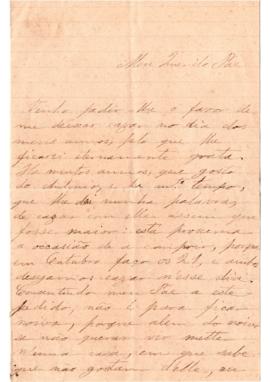 Meu Querido Pae
Venho pedir lhe o favor de
me deixar casar no dia dos
meus annos, pelo que lhe
ficarei eternamente grata.
Ha muitos annos, que gosto
do Antonio, e ha m.to tempo,
que lhe dei minha palavra,
de casar com elle assim que
fosse maior: este proxima
a occasião de a cumprir, porque
em Outubro faço os 21, e ambos
desejamos casar n'esse dia.
Consentindo meu Pae a este
pedido, não é para ficar
noiva, porque alem do noivo
se não querer vir metter
n'uma casa, em que sabe
que não gostam d'elle, eu